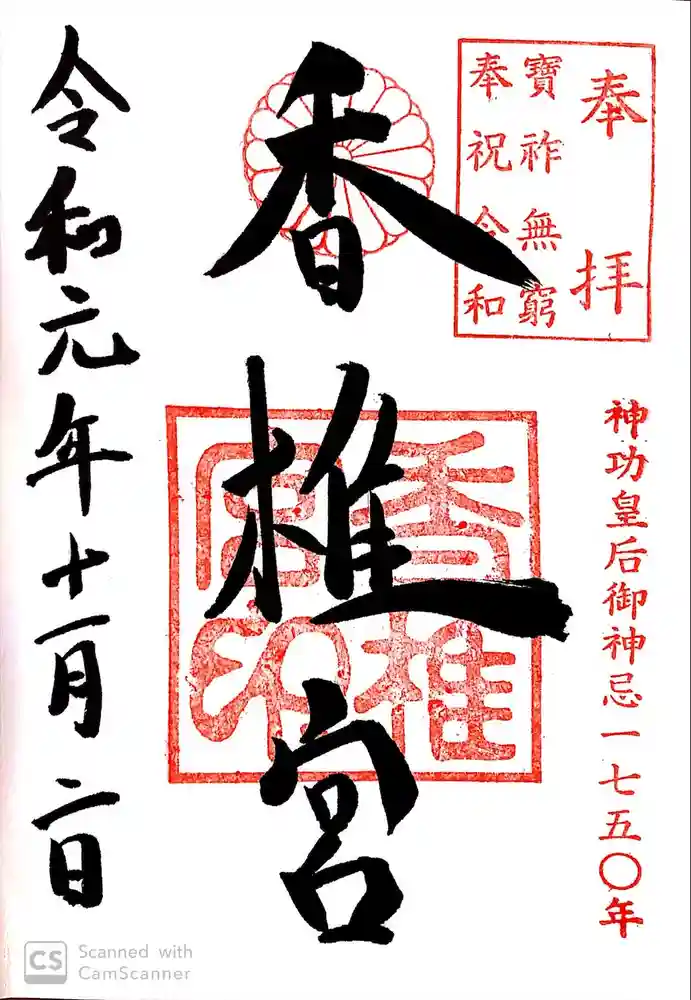 奉拝
寶祚無窮
奉祝令和
神功皇后御神忌一七五〇年
香椎宮
香椎
宮印
令和元年十一月二日
Scanned with
CamScanner
CS